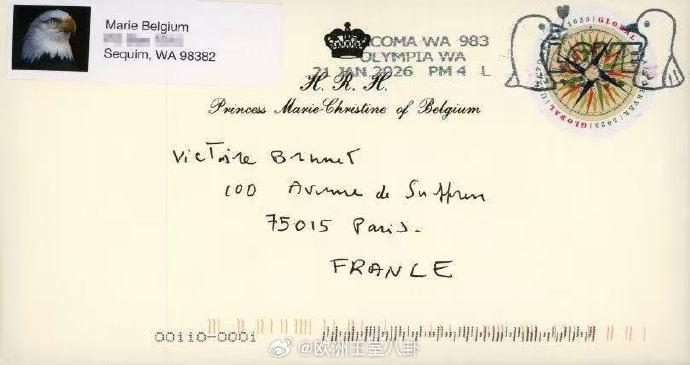 Marie Belgium
Sequim, WA 98382
TACOMA WA 983
OLYMPIA WA
21 JAN 2026 PM 4 L
H. R. H.
Princess Marie-Christine of Belgium
2025 | GLOBAL
FOREVER / 2025 | GLOBAL
Victoire Brunet
100 Avenue de Suffren
75015 Paris.
FRANCE
00110-0001
@欧洲王室八卦